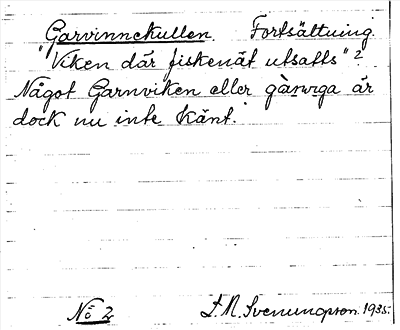 Garvinnekullen Fortsättning
"Viken där fiskenät utsatts"?
Något Garnviken eller gà̄rviga är
dock nu inte känt.
No 2 S.M. Svenungsson. 1935.